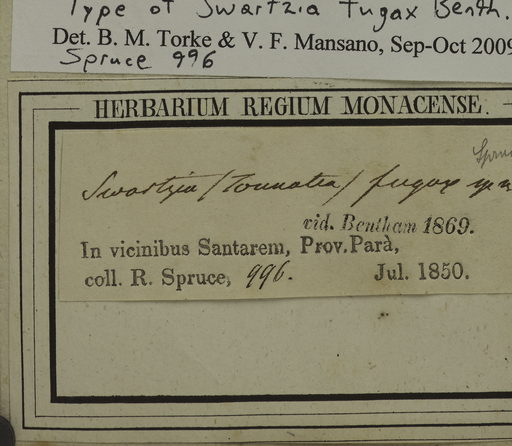 Type of Swartzia fugax Benth.
Det. B. M. Torke & V. F. Mansano, Sep-Oct 2009
Spruce 996
HERBARIUM REGIUM MONACENSE.
Spru
Swartzia (Tounatea) fugax sp. n
vid. Bentham 1869.
In vicinibus Santarem, Prov. Parà,
coll. R. Spruce, 996. Jul. 1850.